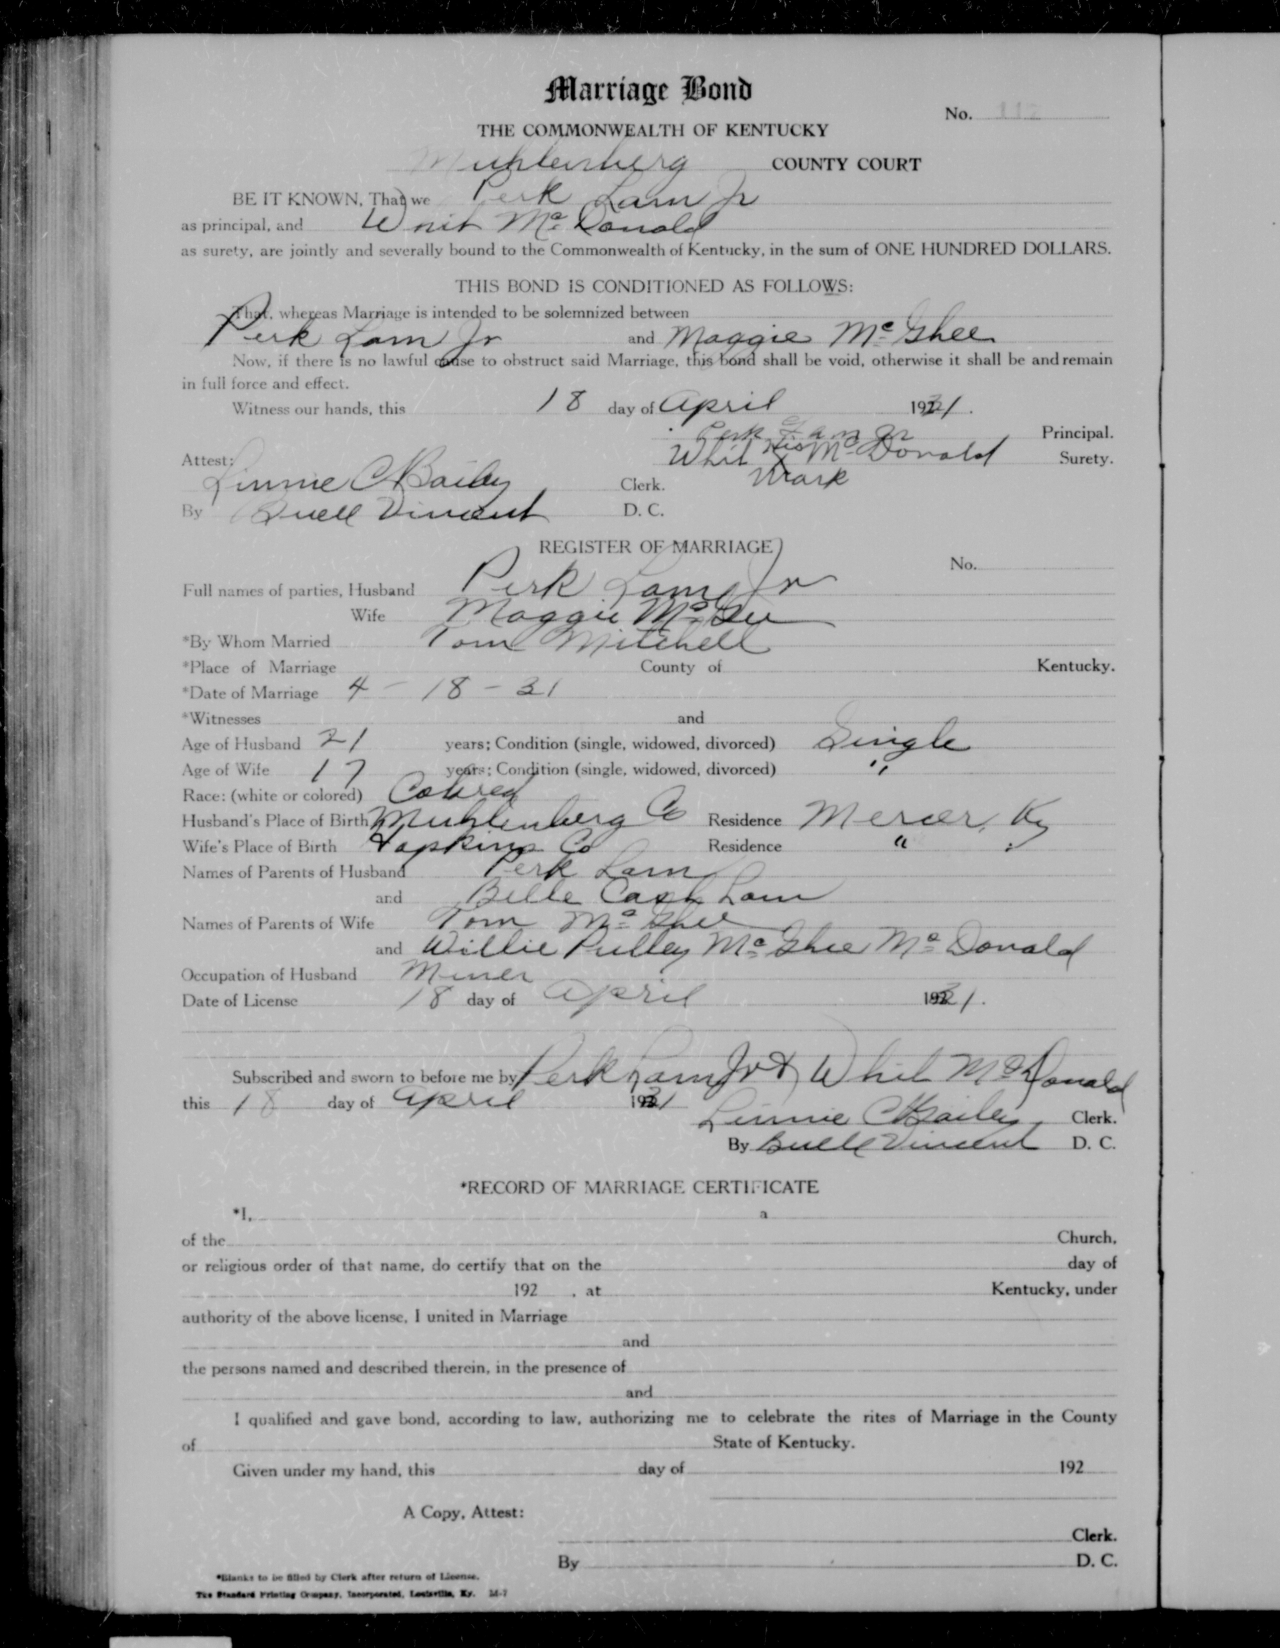 Marriage Bond
No. 112
THE COMMONWEALTH OF KENTUCKY
Muhlenberg COUNTY COURT
BE IT KNOWN, That we Perk Lam Jr
as principal, and Whit Mc Donald
as surety, are jointly and severally bound to the Commonwealth of Kentucky, in the sum of ONE HUNDRED DOLLARS.
THIS BOND IS CONDITIONED AS FOLLOWS:
That, whereas Marriage is intended to be solemnized between
Perk Lam Jr and Maggie Mc Ghee
Now, if there is no lawful cause to obstruct said Marriage, this bond shall be void, otherwise it shall be and remain
in full force and effect.
Witness our hands, this 18 day of April 1931.
Perk Lam Jr Principal.
Attest: Whit His X Mark Mc Donald Surety.
Linnie C Bailey Clerk.
By Buell Vincent D. C.
REGISTER OF MARRIAGE
No.
Full names of parties, Husband Perk Lam Jr
Wife Maggie Mc Gee
*By Whom Married Tom Mitchell
*Place of Marriage County of Kentucky.
*Date of Marriage 4 - 18 - 31
*Witnesses and
Age of Husband 21 years; Condition (single, widowed, divorced) Single
Age of Wife 17 years; Condition (single, widowed, divorced) "
Race: (white or colored) Colored
Husband's Place of Birth Muhlenberg Co Residence Mercer, Ky
Wife's Place of Birth Hopkins Co Residence " "
Names of Parents of Husband Perk Lam
and Belle Cash Lam
Names of Parents of Wife Tom Mc Ghee
and Willie Pulley Mc Ghee Mc Donald
Occupation of Husband Miner
Date of License 18 day of April 1931.
Subscribed and sworn to before me by Perk Lam Jr & Whit Mc Donald
this 18 day of April 1931
Linnie C Bailey Clerk.
By Buell Vincent D. C.
*RECORD OF MARRIAGE CERTIFICATE
*I, a
of the Church,
or religious order of that name, do certify that on the day of
192 , at Kentucky, under
authority of the above license, I united in Marriage
and
the persons named and described therein, in the presence of
and
I qualified and gave bond, according to law, authorizing me to celebrate the rites of Marriage in the County
of State of Kentucky.
Given under my hand, this day of 192
A Copy, Attest:
Clerk.
By D. C.
*Blanks to be filled by Clerk after return of License.
The Standard Printing Company, Incorporated, Louisville, Ky. M-7